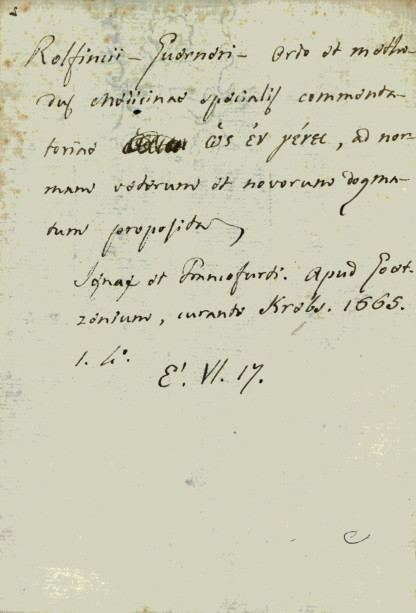 Rolfincii - Guerneri - Ordo et metho-
dus medicinae specialis commenta-
toriae ὡς ἐν γένει, ad nor-
mam veterum et novorum dogma-
tum proposita
Jenae et Francofurti. Apud Goet-
zenium, curante Krebs. 1665.
1. 4°.
E! VI. 17.